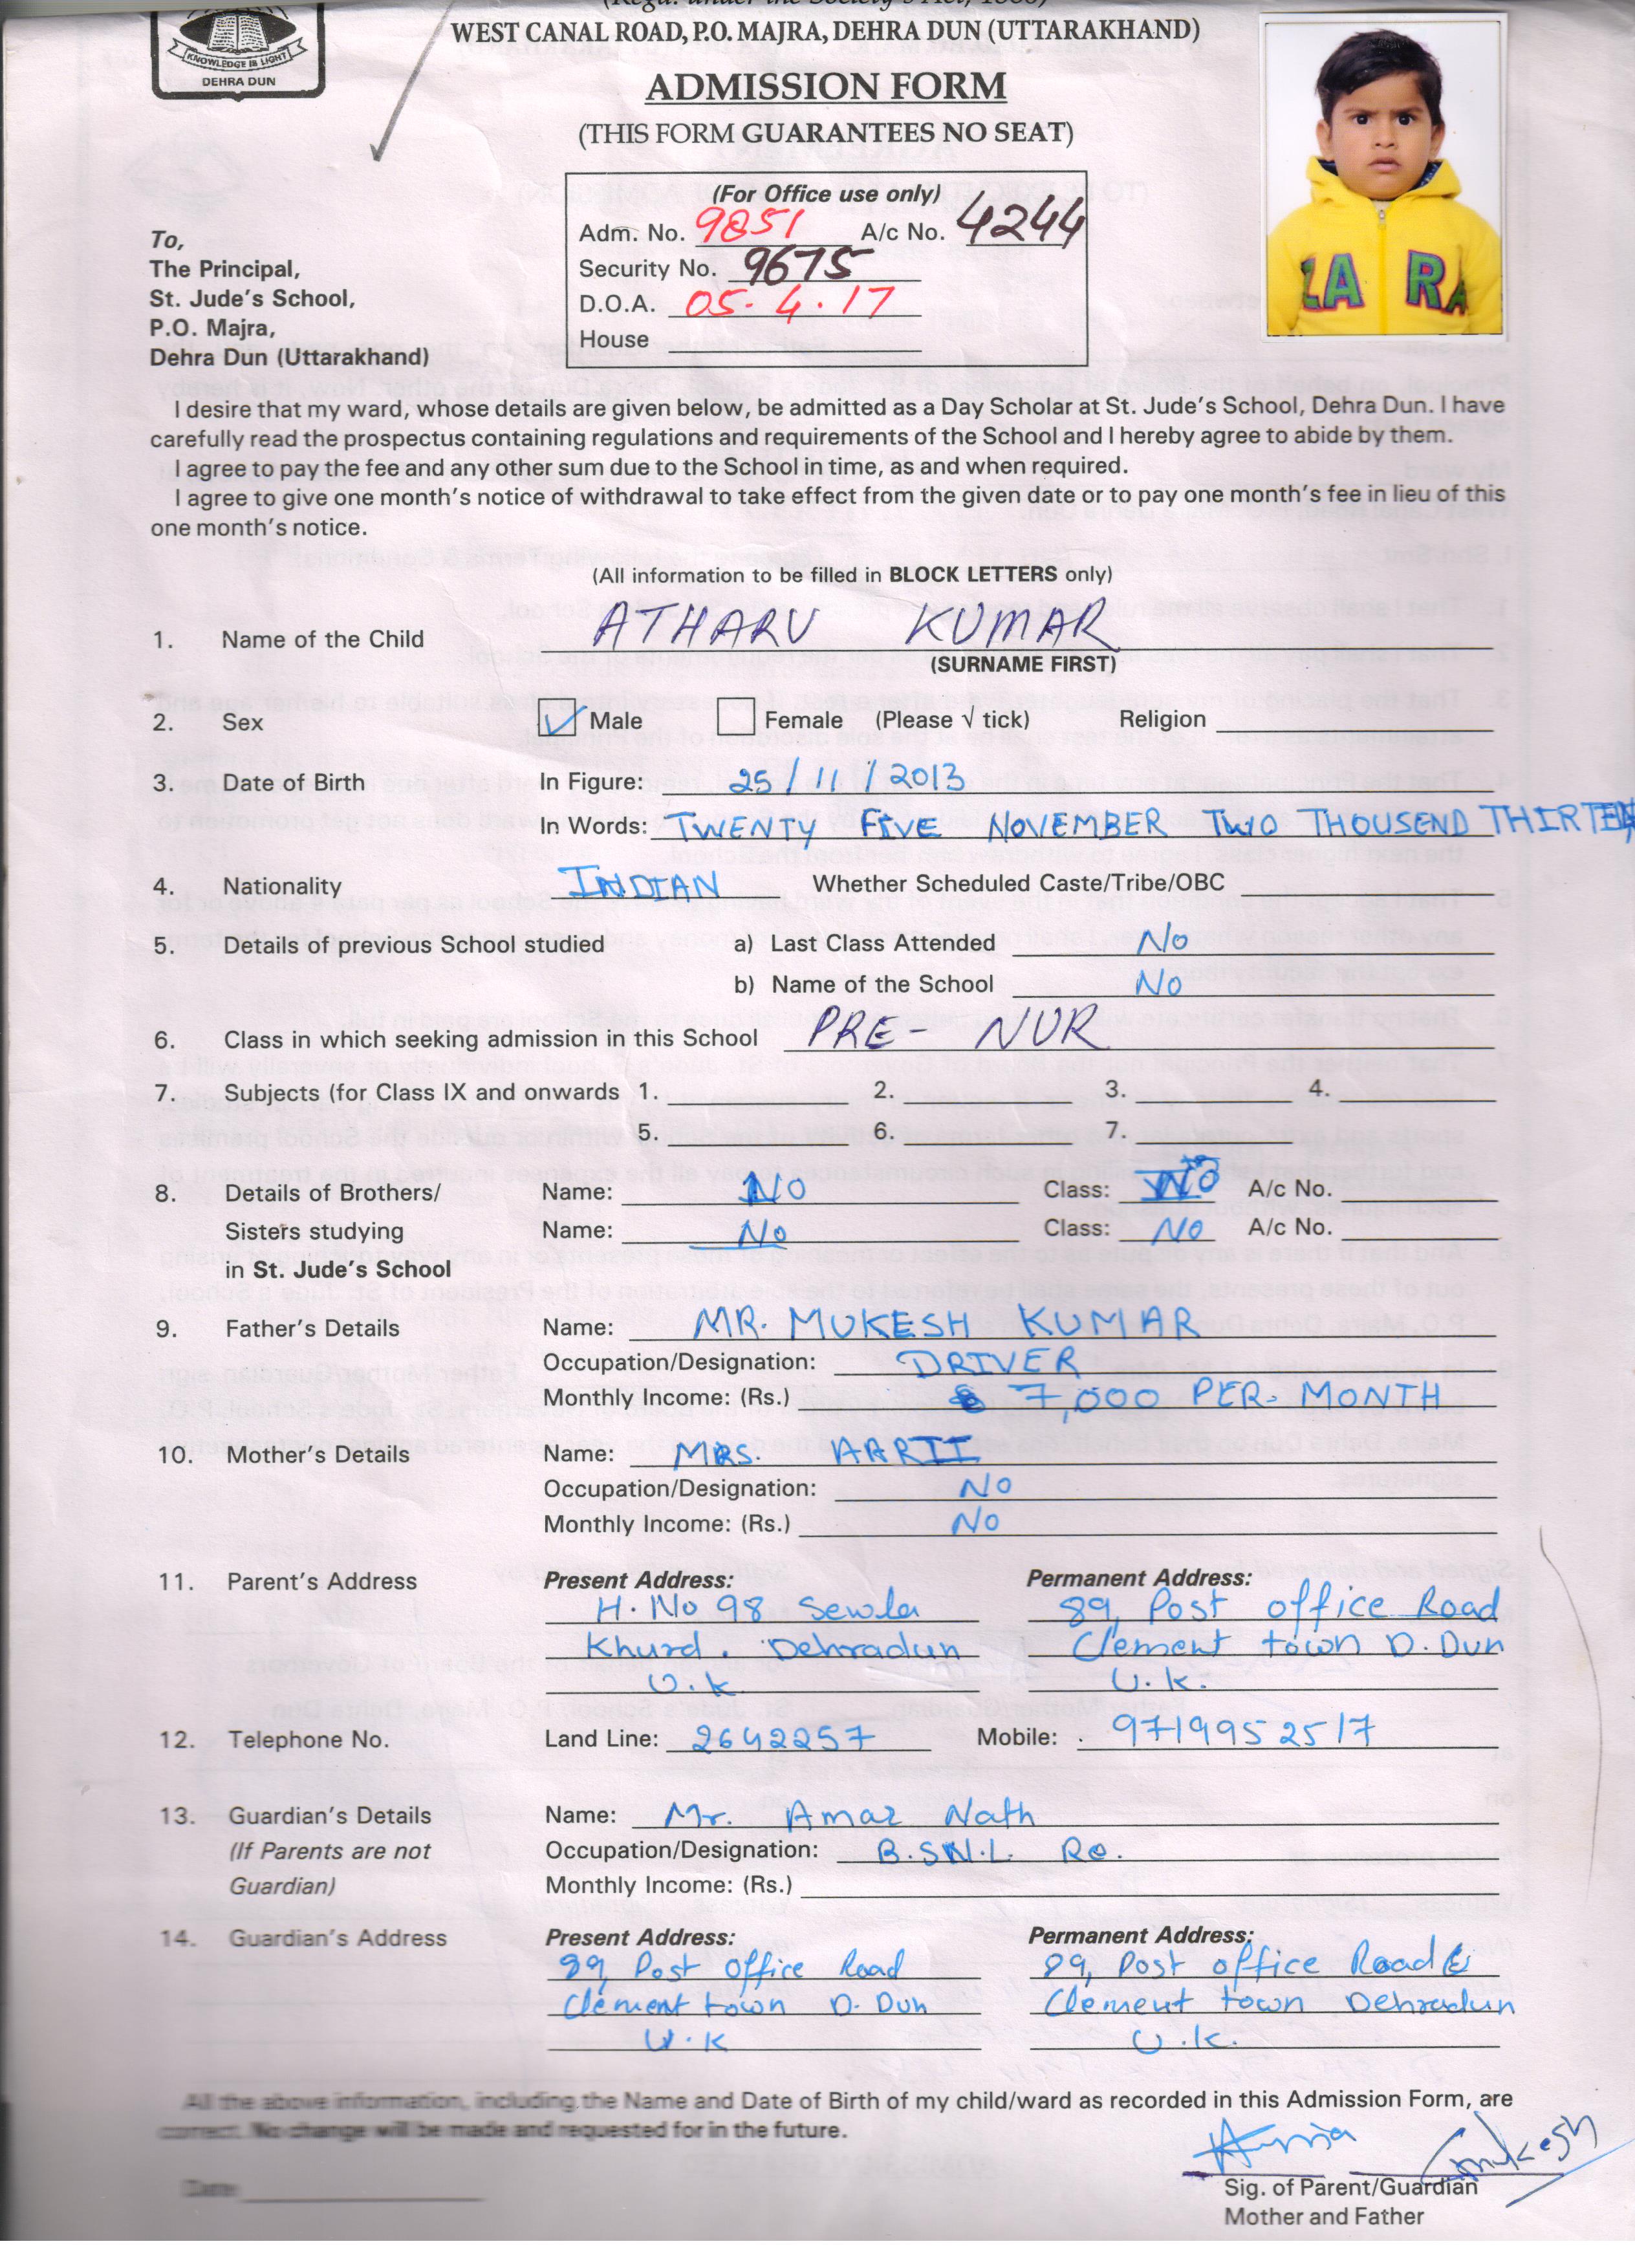 (Regd. under the Society's Act, 1860)
WEST CANAL ROAD, P.O. MAJRA, DEHRA DUN (UTTARAKHAND)
KNOWLEDGE IS LIGHT
DEHRA DUN
ADMISSION FORM
(THIS FORM GUARANTEES NO SEAT)
(For Office use only)
Adm. No. 9851 A/c No. 4244
Security No. 9675
D.O.A. 05.4.17
House
ZA RA
To,
The Principal,
St. Jude's School,
P.O. Majra,
Dehra Dun (Uttarakhand)
I desire that my ward, whose details are given below, be admitted as a Day Scholar at St. Jude's School, Dehra Dun. I have
carefully read the prospectus containing regulations and requirements of the School and I hereby agree to abide by them.
I agree to pay the fee and any other sum due to the School in time, as and when required.
I agree to give one month's notice of withdrawal to take effect from the given date or to pay one month's fee in lieu of this
one month's notice.
(All information to be filled in BLOCK LETTERS only)
1. Name of the Child ATHARV KUMAR
(SURNAME FIRST)
2. Sex Male Female (Please √ tick) Religion
3. Date of Birth In Figure: 25/11/2013
In Words: TWENTY FIVE NOVEMBER TWO THOUSEND THIRTEEN
4. Nationality INDIAN Whether Scheduled Caste/Tribe/OBC
5. Details of previous School studied a) Last Class Attended No
b) Name of the School No
6. Class in which seeking admission in this School PRE- NUR
7. Subjects (for Class IX and onwards 1. 2. 3. 4.
5. 6. 7.
8. Details of Brothers/ Name: NO Class: NO A/c No.
Sisters studying Name: No Class: NO A/c No.
in St. Jude's School
9. Father's Details Name: MR. MUKESH KUMAR
Occupation/Designation: DRIVER
Monthly Income: (Rs.) 7,000 PER-MONTH
10. Mother's Details Name: MRS. AARTI
Occupation/Designation: NO
Monthly Income: (Rs.) NO
11. Parent's Address Present Address: Permanent Address:
H.No 98 Sewla 89, Post office Road
Khurd. Dehradun Clement town D.Dun
U.k U.k.
12. Telephone No. Land Line: 2642257 Mobile: 9719952517
13. Guardian's Details Name: Mr. Amar Nath
(If Parents are not Occupation/Designation: B.SN.L. Re.
Guardian) Monthly Income: (Rs.)
14. Guardian's Address Present Address: Permanent Address:
89, Post office Road 89, Post office Road
Clement town D. Dun Clement town Dehradun
U.K U.k.
All the above information, including the Name and Date of Birth of my child/ward as recorded in this Admission Form, are
correct. No change will be made and requested for in the future.
Mukesh
Date:
Sig. of Parent/Guardian
Mother and Father